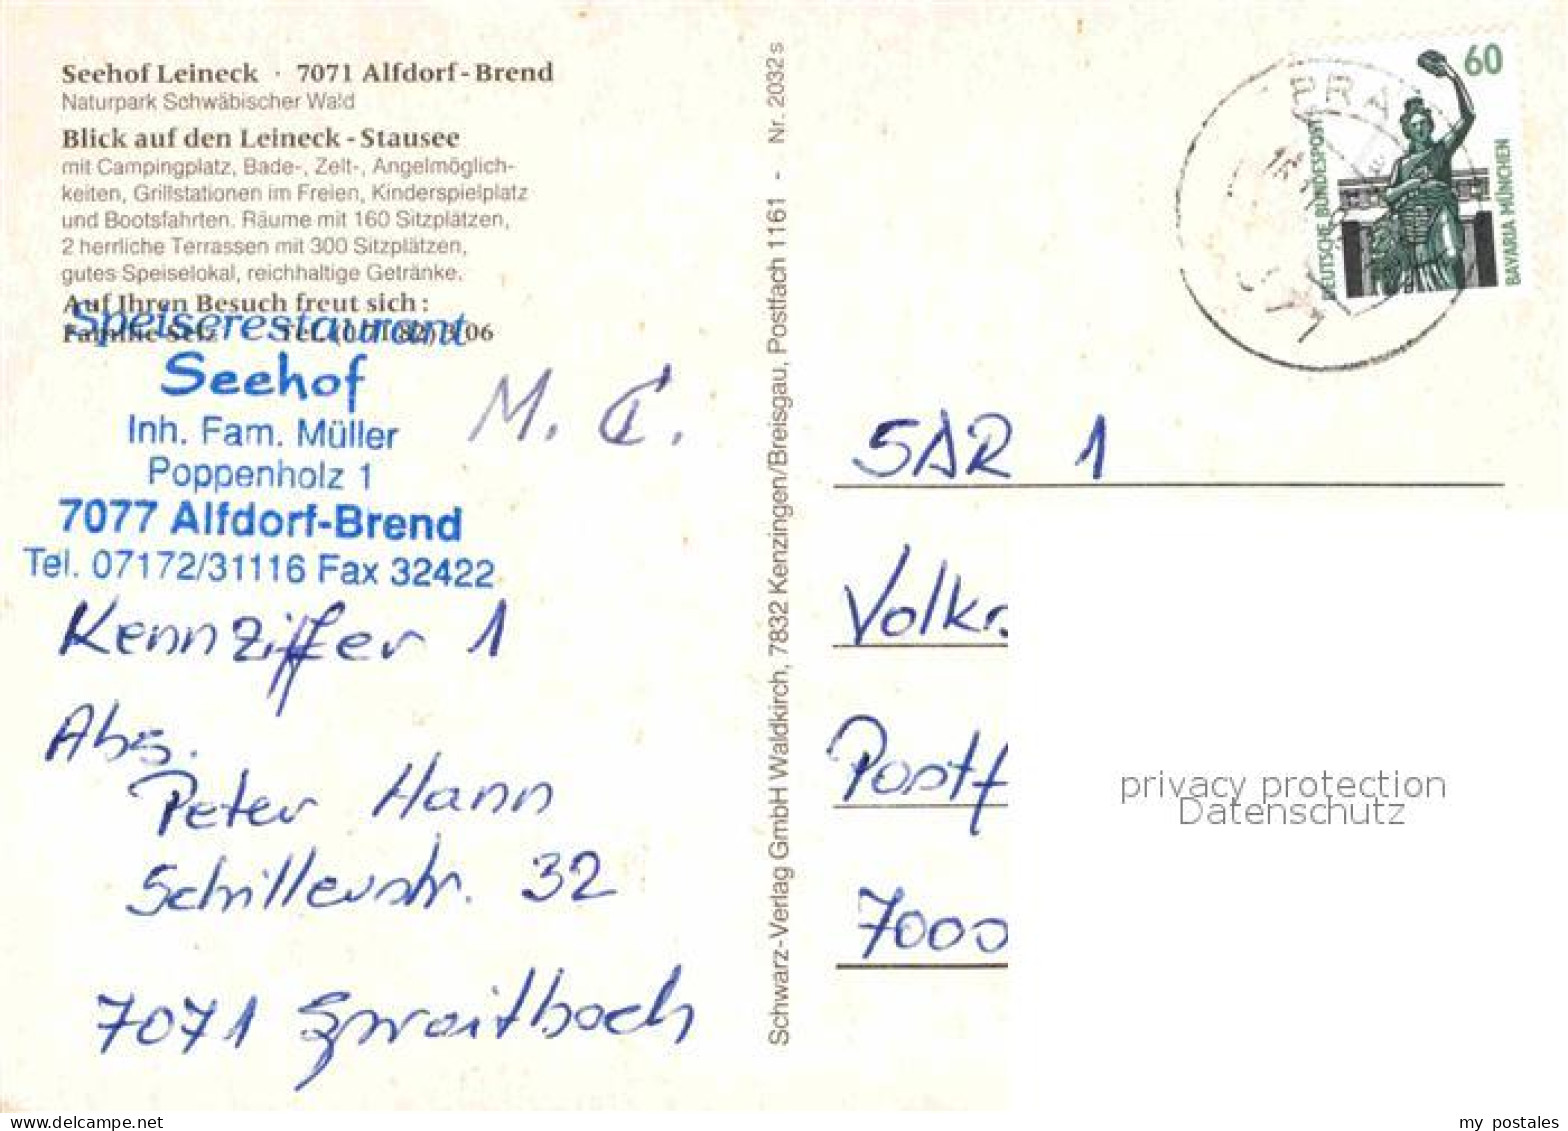 Seehof Leineck · 7071 Alfdorf-Brend
Naturpark Schwäbischer Wald
Blick auf den Leineck-Stausee
mit Campingplatz, Bade-, Zelt-, Angelmöglich-
keiten, Grillstationen im Freien, Kinderspielplatz
und Bootsfahrten. Räume mit 160 Sitzplätzen,
2 herrliche Terrassen mit 300 Sitzplätzen,
gutes Speiselokal, reichhaltige Getränke.
Auf Ihren Besuch freut sich:
Familie
Speiserestaurant
Seehof
Inh. Fam. Müller
Poppenholz 1
7077 Alfdorf-Brend
Tel. 07172/31116 Fax 32422
M. C.
Kennziffer 1
Abs.
Peter Hann
Schillerstr. 32
7071 Spraitbach
Schwarz-Verlag GmbH Waldkirch, 7832 Kenzingen/Breisgau, Postfach 1161 - Nr. 2032 s
60
DEUTSCHE BUNDESPOST
BAVARIA MÜNCHEN
SAR 1
Volkr.
Postf
7000
privacy protection
Datenschutz
www.delcampe.net
my postales